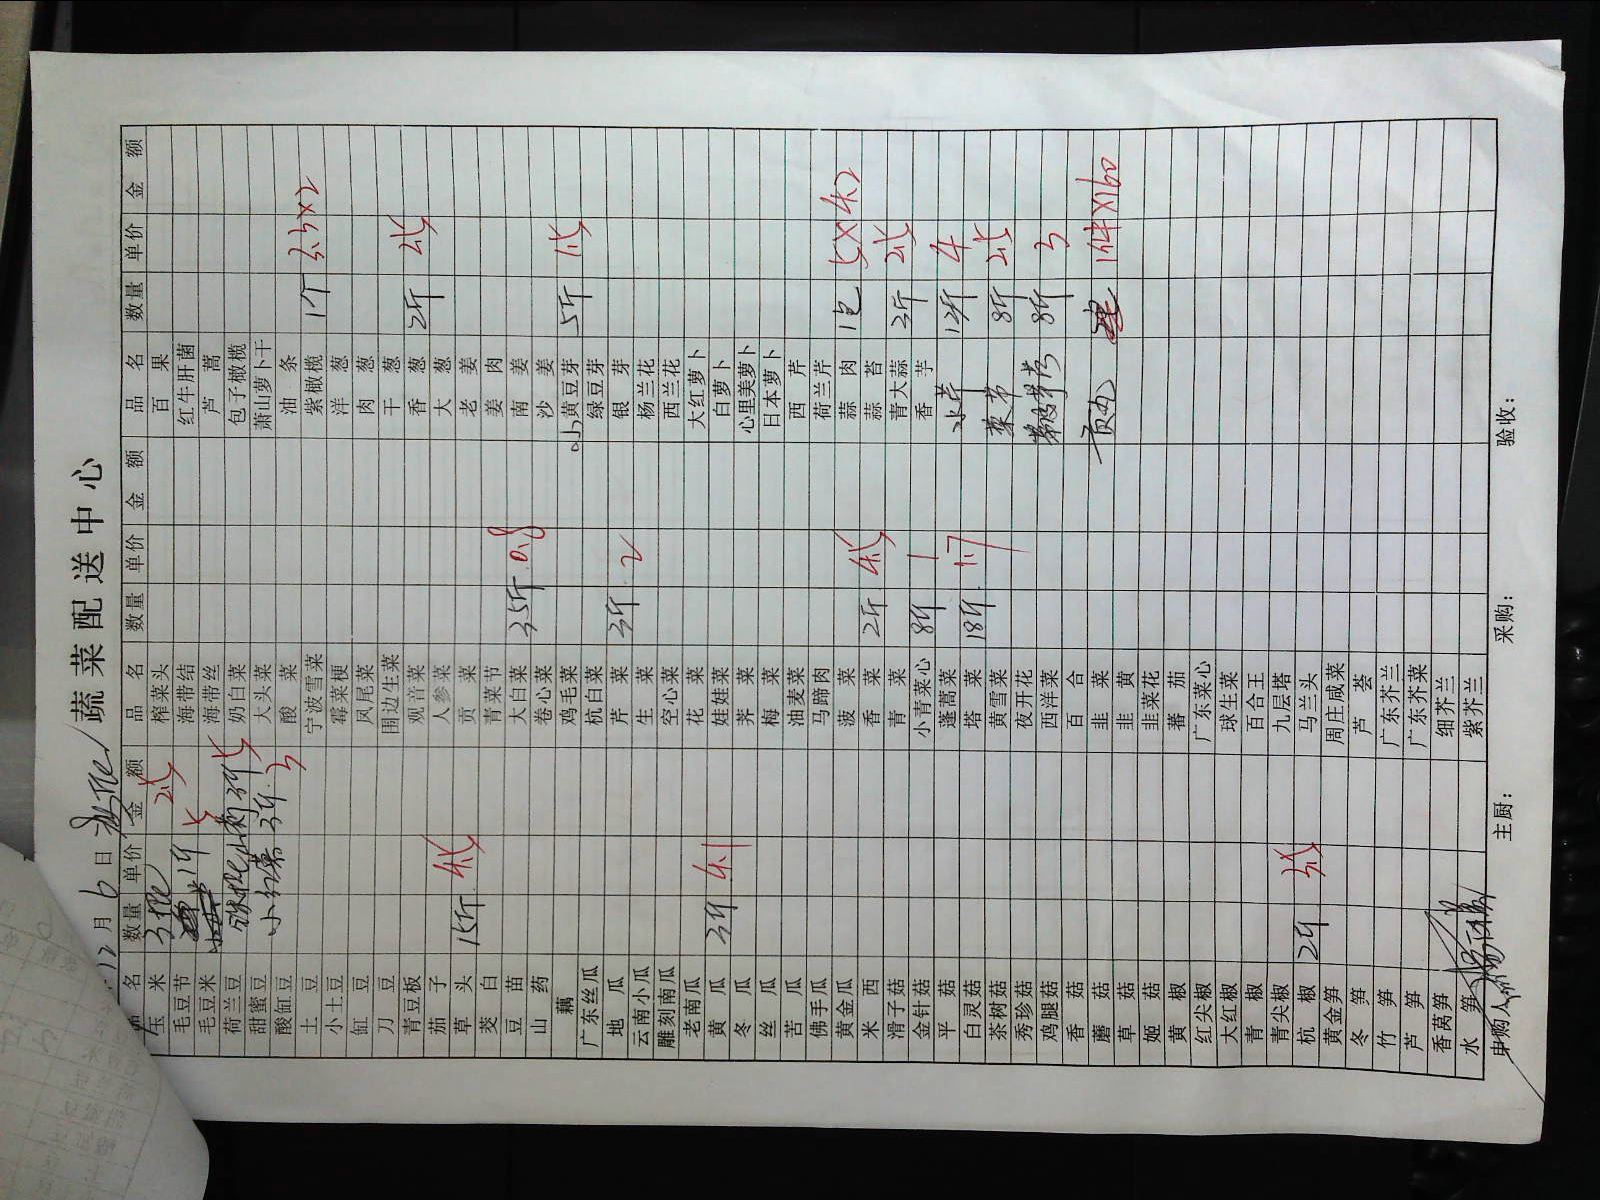 12月6日 蔬菜配送中心
品名 数量 单价 金额 品名 数量 单价 金额 品名 数量 单价 金额
玉米 榨菜头 百果
毛豆节 海带结 红牛肝菌
毛豆米 1斤 海带丝 芦蒿
荷兰豆 奶白菜 包子橄榄
甜蜜豆 大头菜 萧山萝卜干
酸缸豆 小红薯 3斤 3 酸菜 油条
土豆 宁波雪菜 紫橄榄 1个 3.5×2
小土豆 霉菜梗 洋葱
缸豆 凤尾菜 肉葱
刀豆 围边生菜 干葱
青豆板 观音菜 香葱 2斤
茄子 人参菜 大葱
草头 15斤 贡菜 老姜
茭白 青菜节 姜肉
豆苗 大白菜 35斤 0.8 南姜
山药 卷心菜 沙姜
藕 鸡毛菜 小黄豆芽 5斤
广东丝瓜 杭白菜 绿豆芽
地瓜 芹菜 3斤 2 银芽
云南小瓜 生菜 杨兰花
雕刻南瓜 空心菜 西兰花
老南瓜 花菜 大红萝卜
黄瓜 3斤 娃娃菜 白萝卜
冬瓜 荠菜 心里美萝卜
丝瓜 梅菜 日本萝卜
苦瓜 油麦菜 西芹
佛手瓜 马蹄肉 荷兰芹
黄金瓜 菠菜 蒜肉 1包
米西 香菜 2斤 蒜苔
滑子菇 青菜 青大蒜 3斤
金针菇 小青菜心 8斤 1 香芋
平菇 蓬蒿菜 水芹 12斤 4
白灵菇 塔菜 18斤 1.7
茶树菇 黄雪菜 菜节 8斤
秀珍菇 夜开花
鸡腿菇 西洋菜 8斤 3
香菇 百合
蘑菇 韭菜 贡丸 1件×160
草菇 韭黄
姬菇 韭菜花
黄椒 蕃茄
红尖椒 广东菜心
大红椒 球生菜
青椒 百合王
青尖椒 九层塔
杭椒 2斤 马兰头
黄金笋 周庄咸菜
冬笋 芦荟
竹笋 广东芥兰
芦笋 广东芥菜
香莴笋 细芥兰
水笋 紫芥兰
申购人: 主厨: 采购: 验收: